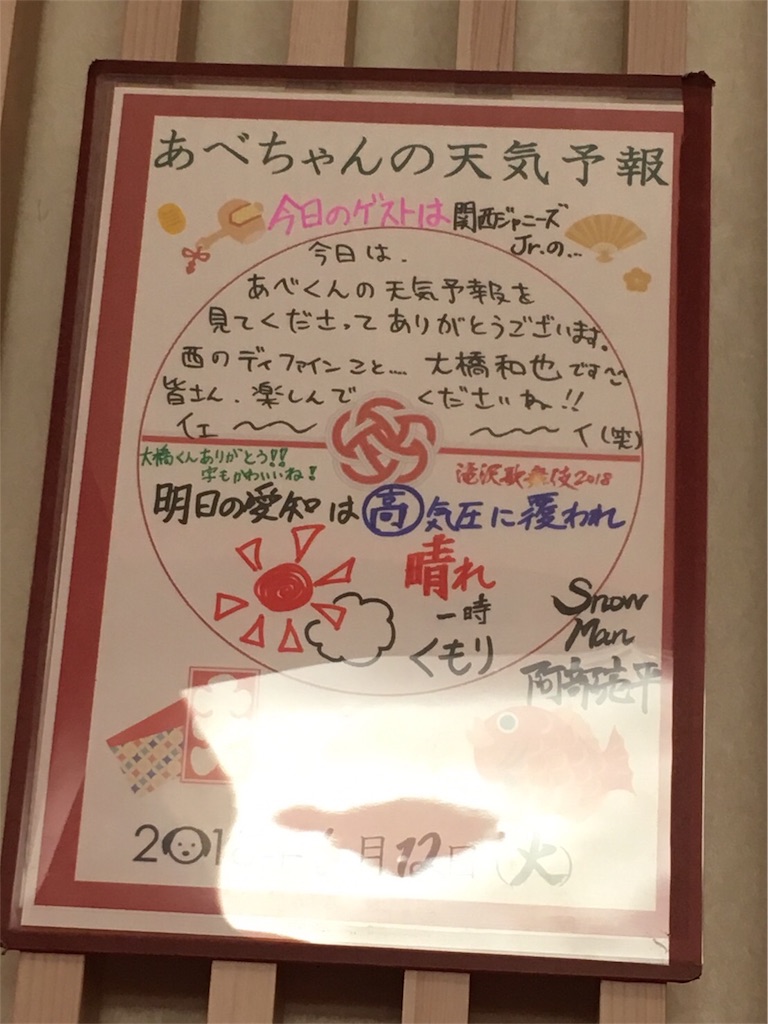 あべちゃんの天気予報
今日のゲストは関西ジャニーズ
Jr.の...
今日は、
あべくんの天気予報を
見てくださってありがとうございます。
西のディファインこと.... 大橋和也です
皆さん、楽しんでくださいね!!
イェ〜〜 〜〜イ(笑)
大橋くんありがとう!!
字もかわいいね!
滝沢歌舞伎2018
明日の愛知は高気圧に覆われ
晴れ
一時
くもり
Snow
Man
阿部亮平
月12日(火)